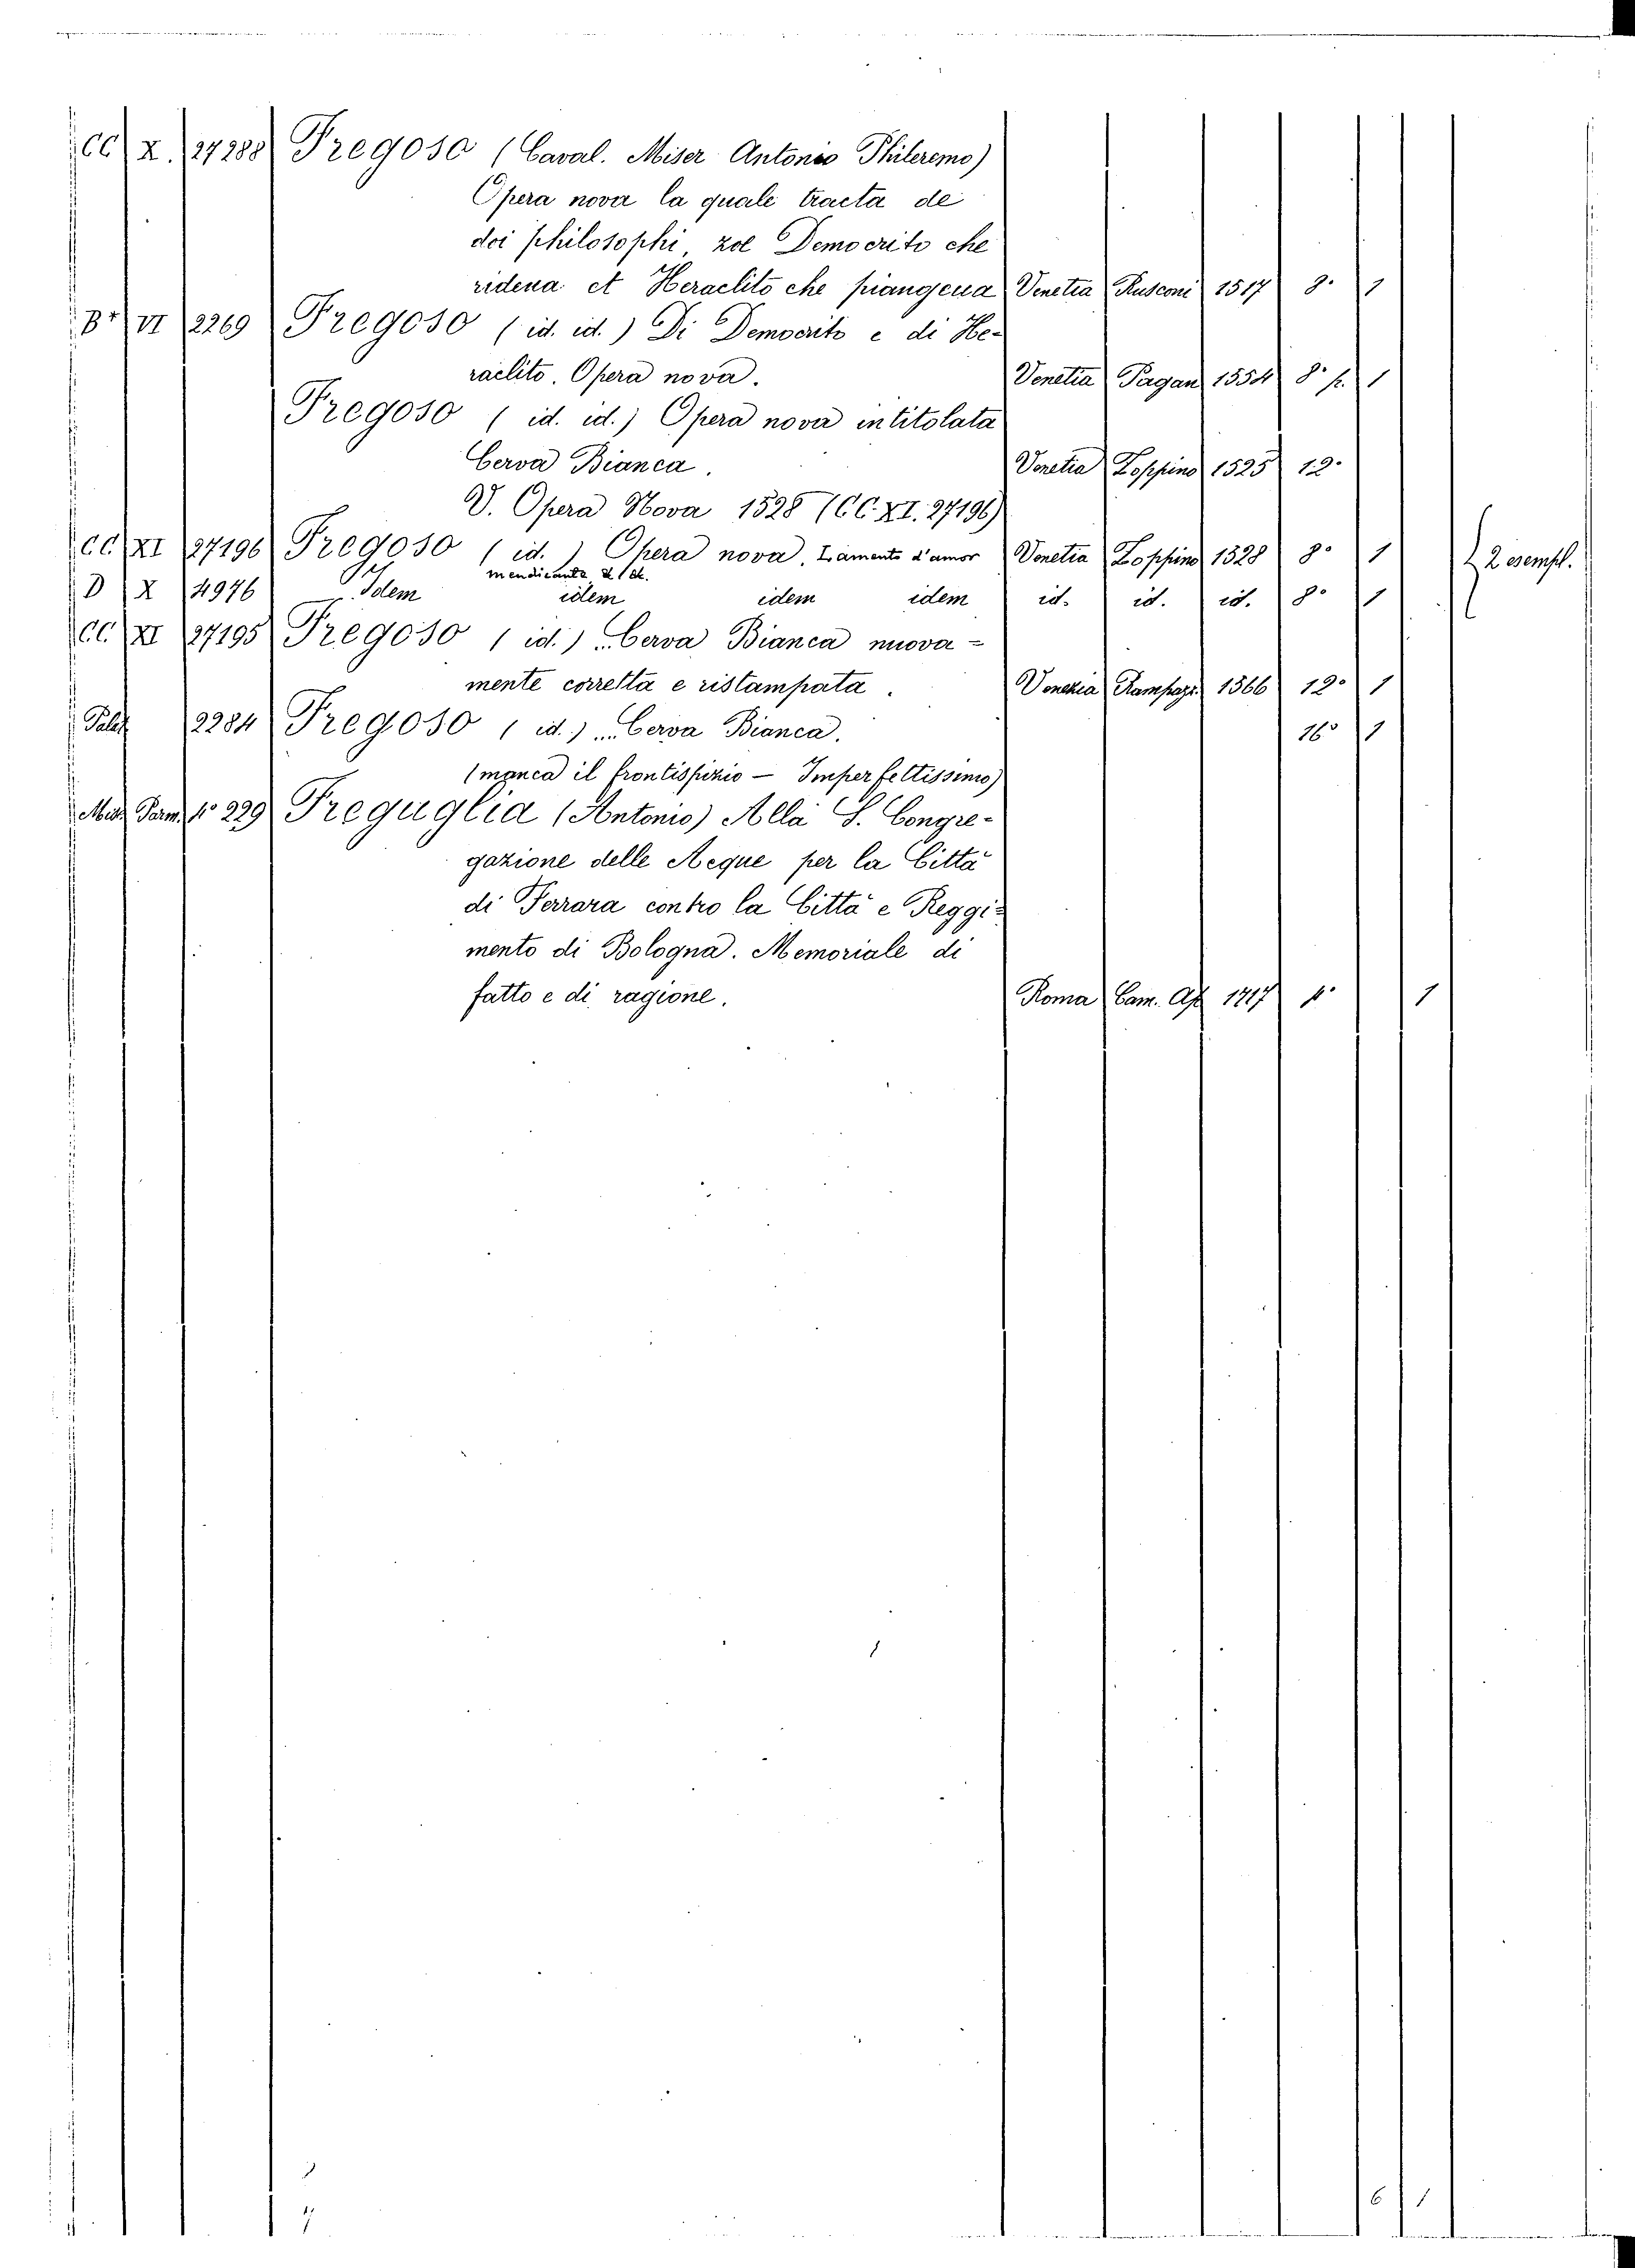 CC X. 27288 Fregoso (Caval. Miser Antonio Phileremo)
Opera nova la quale tracta de
doi philosophi, zoe Democrito che
rideva et Heraclito che piangeva Venetia Rusconi 1517 8° 1
B+ VI 2269 Fregoso (id. id.) Di Democrito e di He-
raclito. Opera nova. Venetia Pagan 1554 8° p. 1
Fregoso (id. id.) Opera nova intitolata
Cerva Bianca. Venetia Zoppino 1525 12°
V. Opera Nova 1528 (CC. XI. 27196)
CC XI 27196 Fregoso (id.) Opera nova, Lamento d'amor Venetia Zoppino 1528 8° 1
mendicante
D X 4976 Idem idem idem idem id. id. id. 8° 1
2 esempl.
CC. XI 27195 Fregoso (id.) Cerva Bianca nuova-
mente corretta e ristampata. Venezia Rampaze 1566 12° 1
Palat 2284 Fregoso (id.) Cerva Bianca. 16° 1
(manca il frontispizio – Imperfettissimo)
Misc. Parm. 4° 229 Freguglia (Antonio) Alla S. Congre-
gazione delle Acque per la Città
di Ferrara contro la Città e Reggi-
mento di Bologna. Memoriale di
fatto e di ragione. Roma Cam. Ap 1717 4° 1
6 1